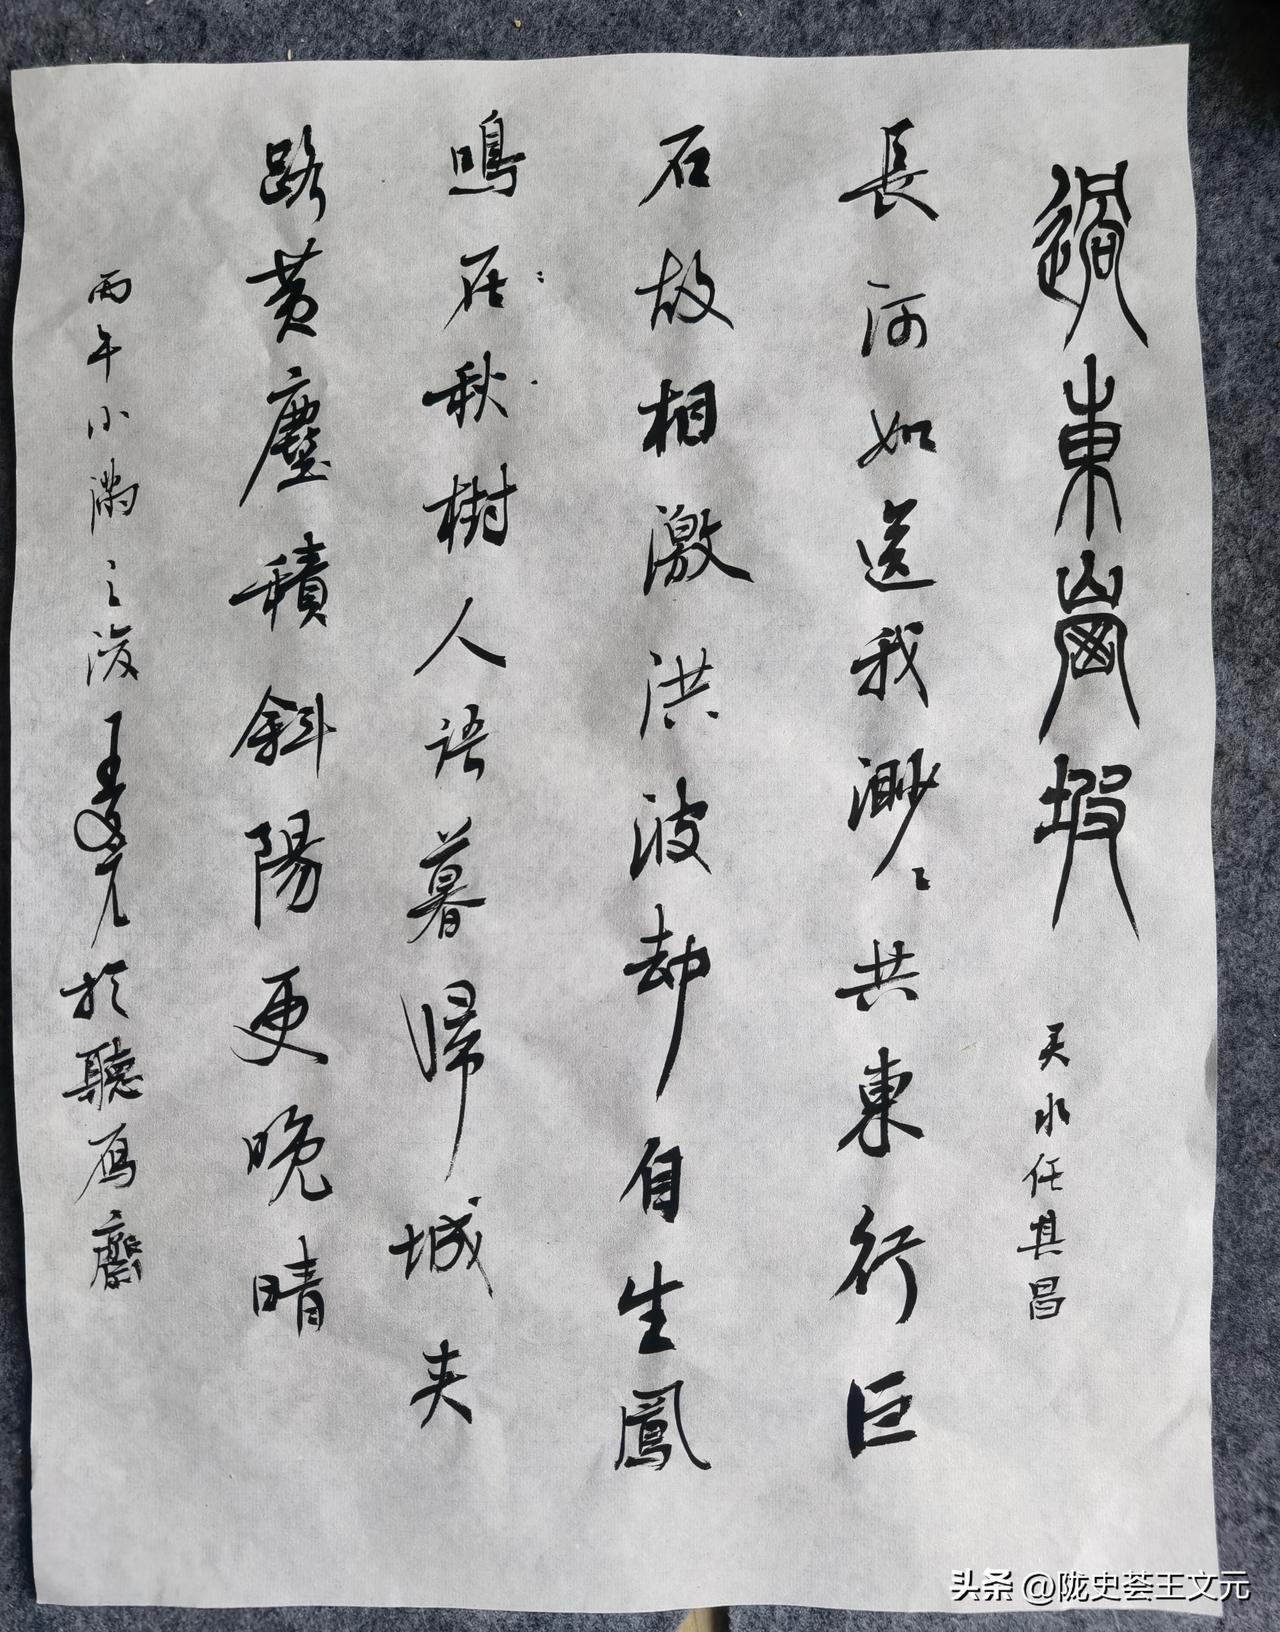 過東崗坡 天水任其昌
長河如送我渺〻共東行巨
石故相激洪波却自生鳳
鳴在秋樹人語暮歸城夹
路黄塵積斜陽更晚晴
丙午小滿之後王文元於聽雁
头条 @陇史荟王文元